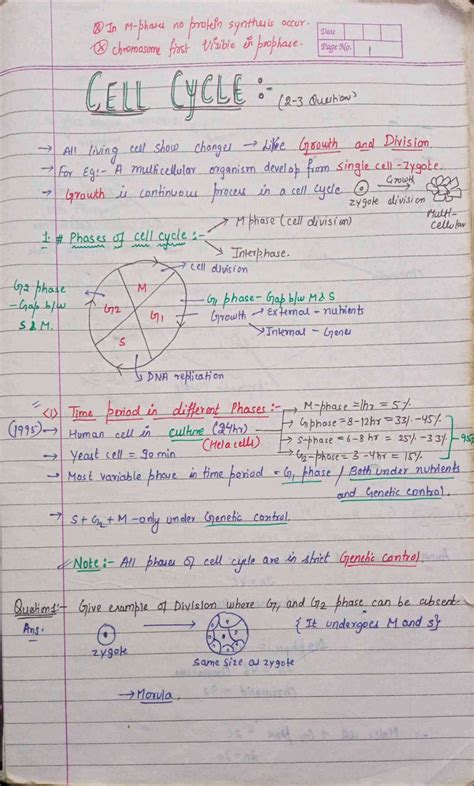 In M-phase no protein synthesis occur.
chromosome first visible in prophase.
Date
Page No. 1
CELL CYCLE :- (2-3 Question)
→ All living cell show changes → Like Growth and Division
→ For Eg:- A multicellular organism develop from single cell - Zygote.
→ Growth is continuous process in a cell cycle
Growth
zygote division
Multi-
Cellular
1. # Phases of cell cycle :-
M phase (cell division)
Interphase.
cell division
G2 phase
- Gap b/w
S & M.
M
G2
G1
S
G1 phase - Gap b/w M & S
Growth → External - nutrients
→ Internal - Genes
DNA replication
<1) Time period in different Phases :-
M-phase = 1hr = 5%
G1phase = 8-12hr = 33% - 45%
S-phase = 6-8 hr = 25% - 33%
G2-phase = 3-4hr = 15%
95%
(1995) → Human cell in culture (24hr)
(Hela cells)
→ Yeast cell = 90 min
→ Most variable phase in time period = G1 phase / Both under nutrients
and Genetic control.
→ S + G2 + M - only under Genetic control.
Note :- All phases of cell cycle are in strict Genetic control.
Question 1:- Give example of Division where G1 and G2 phase can be absent.
Ans.
{ It undergoes M and S}
zygote
same size as zygote
→ Morula.